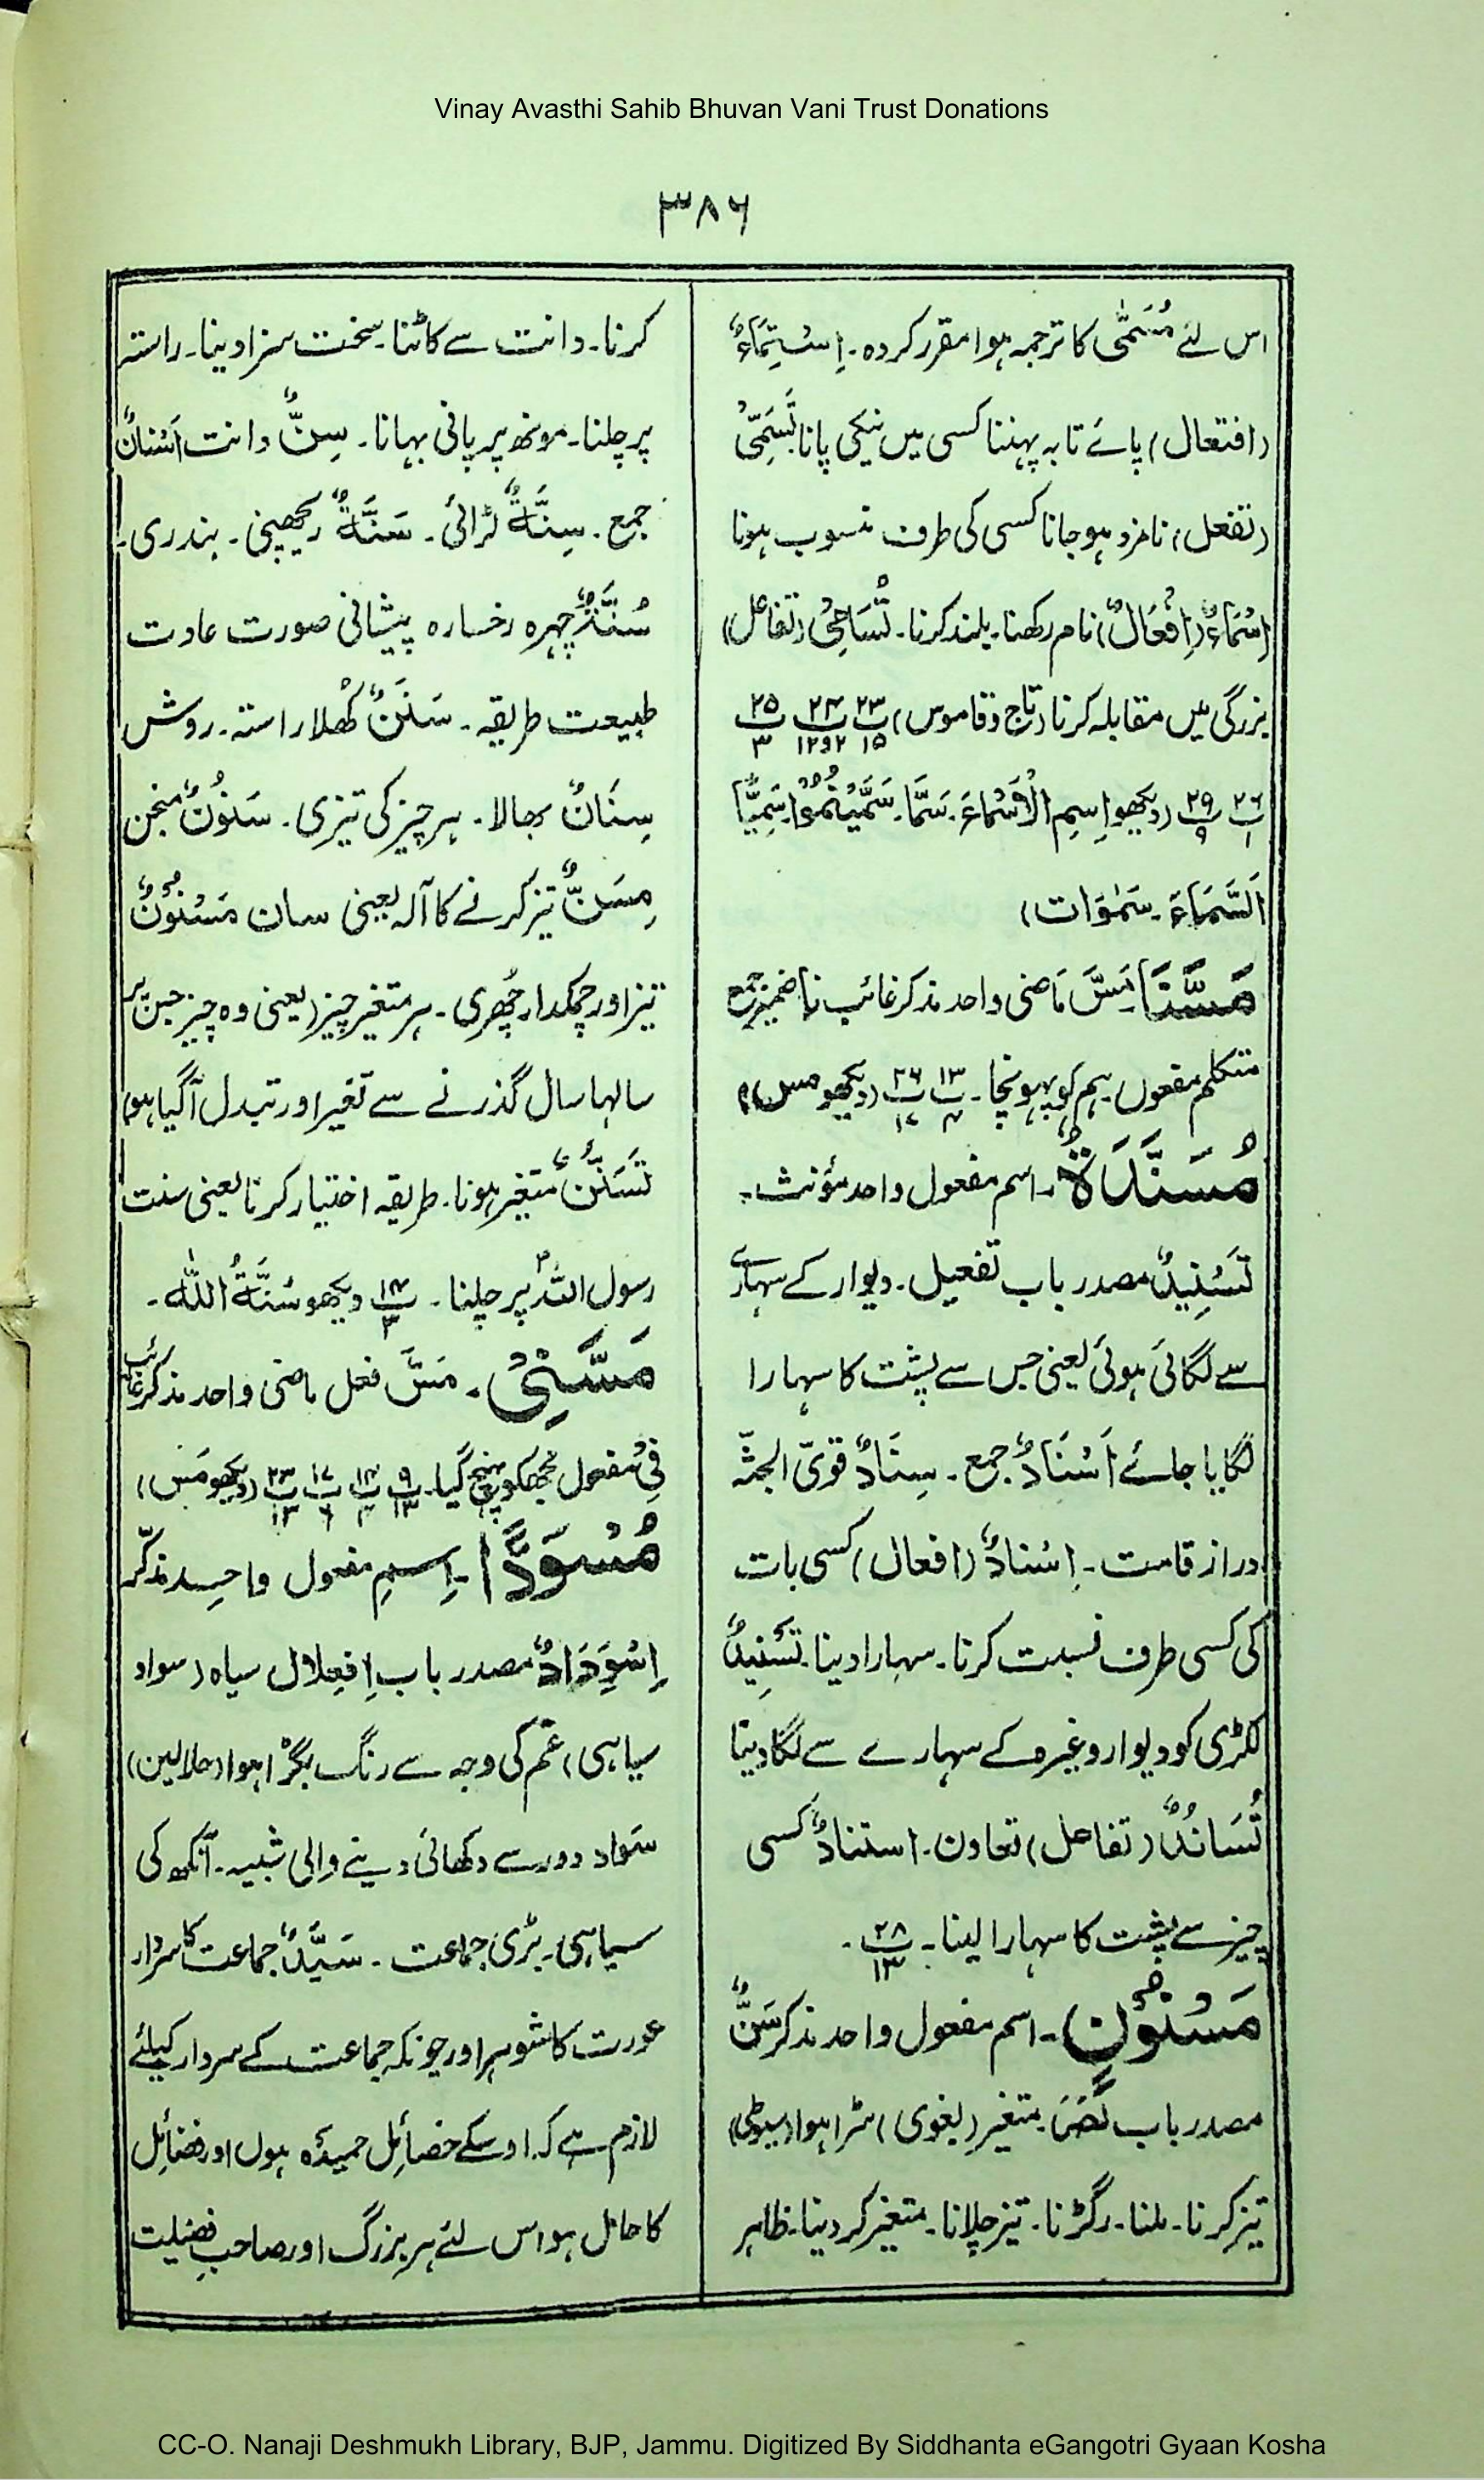 Vinay Avasthi Sahib Bhuvan Vani Trust Donations
۳۸۶
اس لئے مُسَمّٰی کا ترجمہ ہوا مقرر کردہ۔ اِسْتِمَاءٌ
(افتعال) پائے تابہ پہننا کسی میں نیکی پانا تَسَمِّیْ
(تفعل) نامزد ہو جانا کسی کی طرف منسوب ہونا
اِسْمَاءٌ (اِفْعَالٌ) نام رکھنا۔ بلند کرنا۔ تَسَامِیْ (تفاعل)
بزرگی میں مقابلہ کرنا (تاج و قاموس) پ۲۳/۱۵ پ۲۴/۲و۱۲ پ۲۵/۳
پ۲۶/۱ پ۲۹/۹ (دیکھو اِسم الْاَسْمَاءَ۔ سَمَّا۔ سَمَّیْتُمُوْا۔ سَمِیًّا
اَلسَّمَاءَ۔ سَمٰوَات)
مَسَّنَا۔ مَسَّ مَاضی واحد مذکر غائب نا ضمیر جمع
متکلم مفعول۔ ہم کو پہونچا۔ پ۱۳/۴ پ۲۶/۱۷ (دیکھو مس)
مُسَنَّدَۃٌ۔ اسم مفعول واحد مؤنث۔
تَسْنِیدٌ مصدر باب تفعیل۔ دیوار کے سہارے
سے لگائی ہوئی یعنی جس سے پشت کا سہارا
لگایا جائے اَسْنَادٌ جمع۔ سِنَادٌ قویّ الجثّہ
دراز قامت۔ اِسْنَادٌ (افعال) کسی بات
کی کسی طرف نسبت کرنا۔ سہارا دینا۔ تَسْنِیدٌ
لکڑی کو دیوار وغیرہ کے سہارے سے لگا دینا
تَسَانُدٌ (تفاعل) تعاون۔ استنادٌ کسی
چیز سے پشت کا سہارا لینا۔ پ۲۸/۱۳۔
مَسْنُوْنٍ۔ اسم مفعول واحد مذکر سَنٌّ
مصدر باب نَصَرَ۔ متغیر (بغوی) سڑا ہوا (سیوطی)
تیز کرنا۔ ملنا۔ رگڑنا۔ تیز چلانا۔ متغیر کر دینا۔ ظاہر
کرنا۔ دانت سے کاٹنا۔ سخت سزا دینا۔ راستہ
پر چلنا۔ مونھ پر پانی بہانا۔ سِنٌّ دانت اَسْنَانٌ
جمع۔ سِنَّةٌ لڑائی۔ سَنَّةٌ ریچھنی۔ بندری۔
سُنَّةٌ چہرہ رخسارہ پیشانی صورت عادت
طبیعت طریقہ۔ سَنَنٌ کُھلا راستہ۔ روش
سِنَانٌ بھالا۔ ہر چیز کی تیزی۔ سَنُوْنٌ منجن
مِسَنٌّ تیز کرنے کا آلہ یعنی سان مَسْنُوْنٌ
تیز اور چمکدار چُھری۔ ہر متغیر چیز (یعنی وہ چیز جس پر
سالہا سال گذرنے سے تغیر اور تبدل آ گیا ہو)
تَسَنُّنٌ متغیر ہونا۔ طریقہ اختیار کرنا یعنی سنت
رسول اللہؐ پر چلنا۔ پ۱۴/۳ دیکھو سُنَّةُ اللّٰه۔
مَسَّنِیْ۔ مَسَّ فعل ماضی واحد مذکر غائب
نِیْ مفعول مجھکو پہنچ گیا۔ پ۹/۱۳ پ۱۴/۴ پ۱۷/۶ پ۲۳/۱۳ (دیکھو مَس)
مُسْوَدًّا۔ اِسمِ مفعول واحِد مذکّر
اِسْوِدَادٌ مصدر باب اِفعِلال سیاہ (سواد
سیاہی) غم کی وجہ سے رنگ بگڑا ہوا (جلالین)
سَواد دور سے دکھائی دینے والی شبیہ۔ آنکھ کی
سیاہی۔ بڑی جماعت۔ سَیِّدٌ جماعت کا سردار
عورت کا شوہر اور چونکہ جماعت کے سردار کیلئے
لازم ہے کہ اوسکے خصائِل حمیدہ ہوں اور فضائِل
کا حامل ہو اس لئے ہر بزرگ اور صاحبِ فضیلت
CC-O. Nanaji Deshmukh Library, BJP, Jammu. Digitized By Siddhanta eGangotri Gyaan Kosha